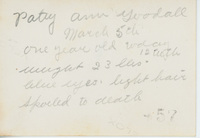 Patsy Ann Goodall
March 5th
one year old today
12 teeth
weight 23 lbs.
blue eyes. light hair
spoiled to death
-57